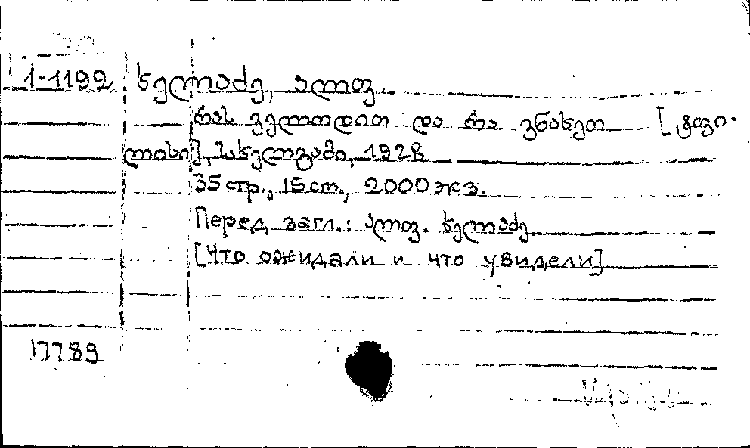 1-1192 ხელაძე, ალოფ.
რას ველოდით და რა ვნახეთ [ტფი-
ლისი], სახელგამი, 1928
35 стр., 15 cm., 2000 экз.
Перед загл.: ალოფ. ხელაძე
[Что ожидали и что увидели]
17789